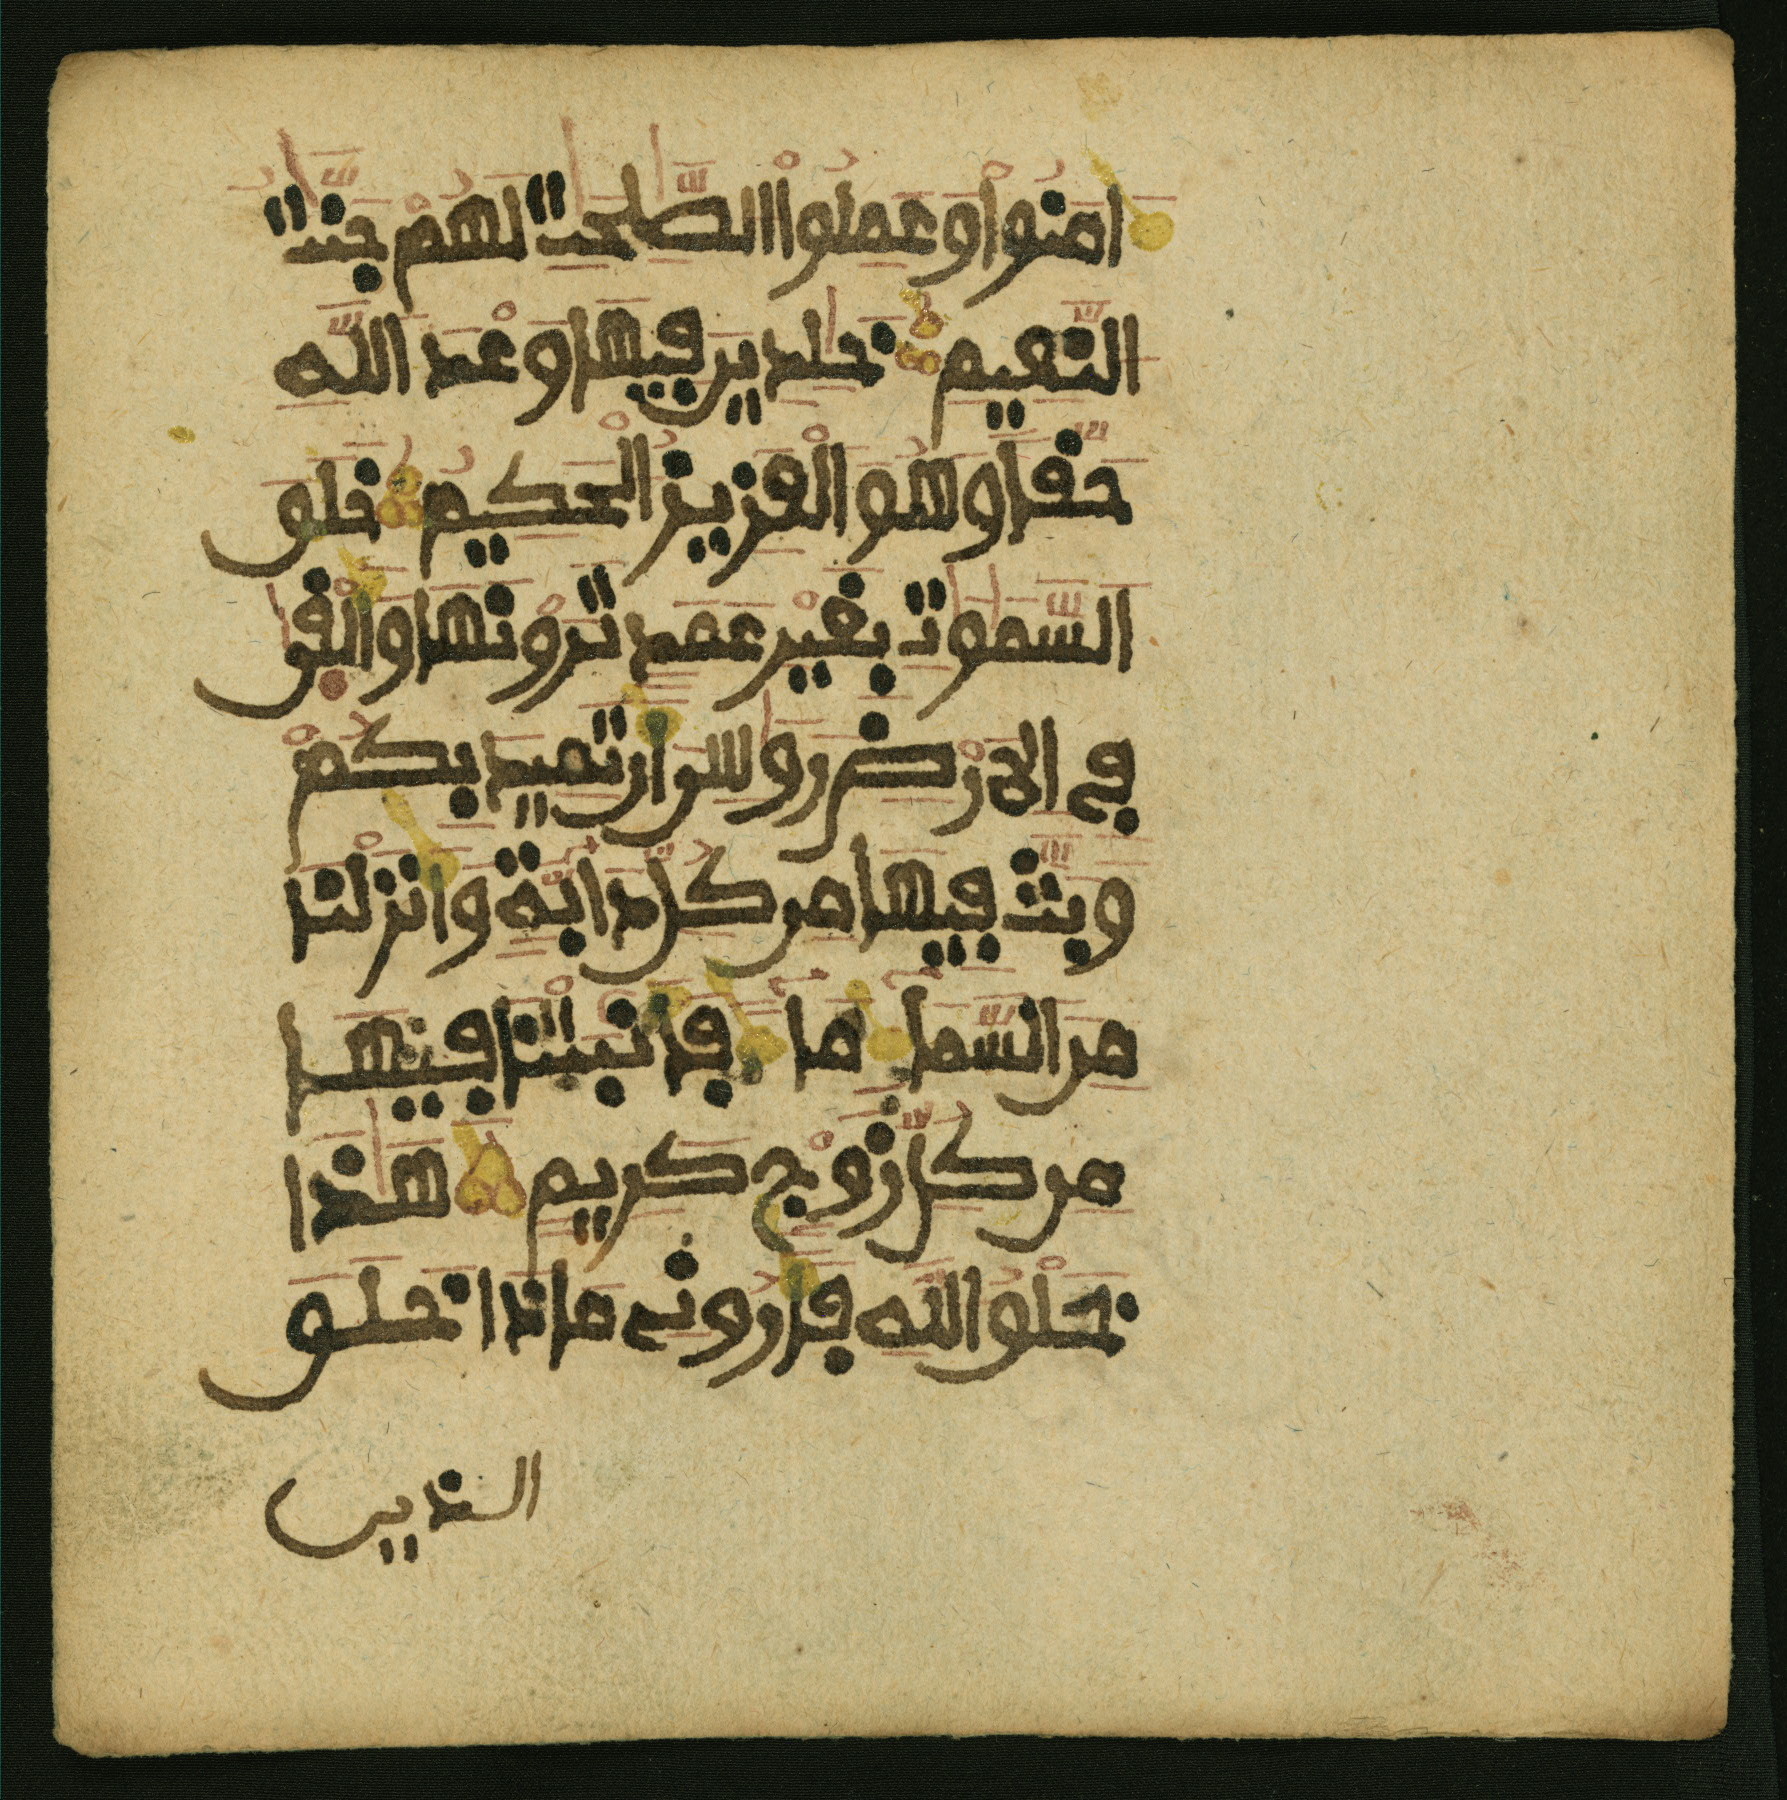 ءامنوا وعملوا الصلحت لهم جنت
النعيم خلدين فيها وعد الله
حقا وهو العزيز الحكيم خلق
السموت بغير عمد ترونها وألقى
في الارض روسى ان تميد بكم
وبث فيها من كل دابة وانزلنا
من السماء ماء فانبتنا فيها
من كل زوج كريم هذا
خلق الله فاروني ماذا خلق
الذين